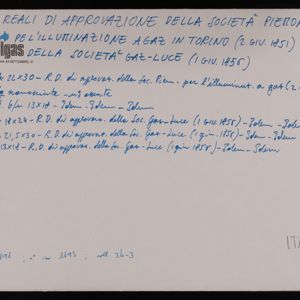 REALI DI APPROVAZIONE DELLA SOCIETÀ PIEMON
PE L'ILLUMINAZIONE A GAZ IN TORINO (2 GIU. 1851)
DELLA SOCIETÀ GAZ-LUCE (1 GIU. 1855)
lgas
22x30 - R.D. di approvaz. della Soc. Piem. per l'illuminaz. a gaz (2
13x18 - Idem - Idem - Idem
18x24 - R.D. di approvaz. della Soc. Gaz-Luce (1 GIU. 1855) - Idem -
21,5x30 - R.D. di approvaz. della Soc. Gaz-Luce (1 giu. 1855) - Idem - Idem
13x18 - R.D. di approvaz. della Soc. Gaz-Luce (1 giu 1855) - Idem - Idem
ITA